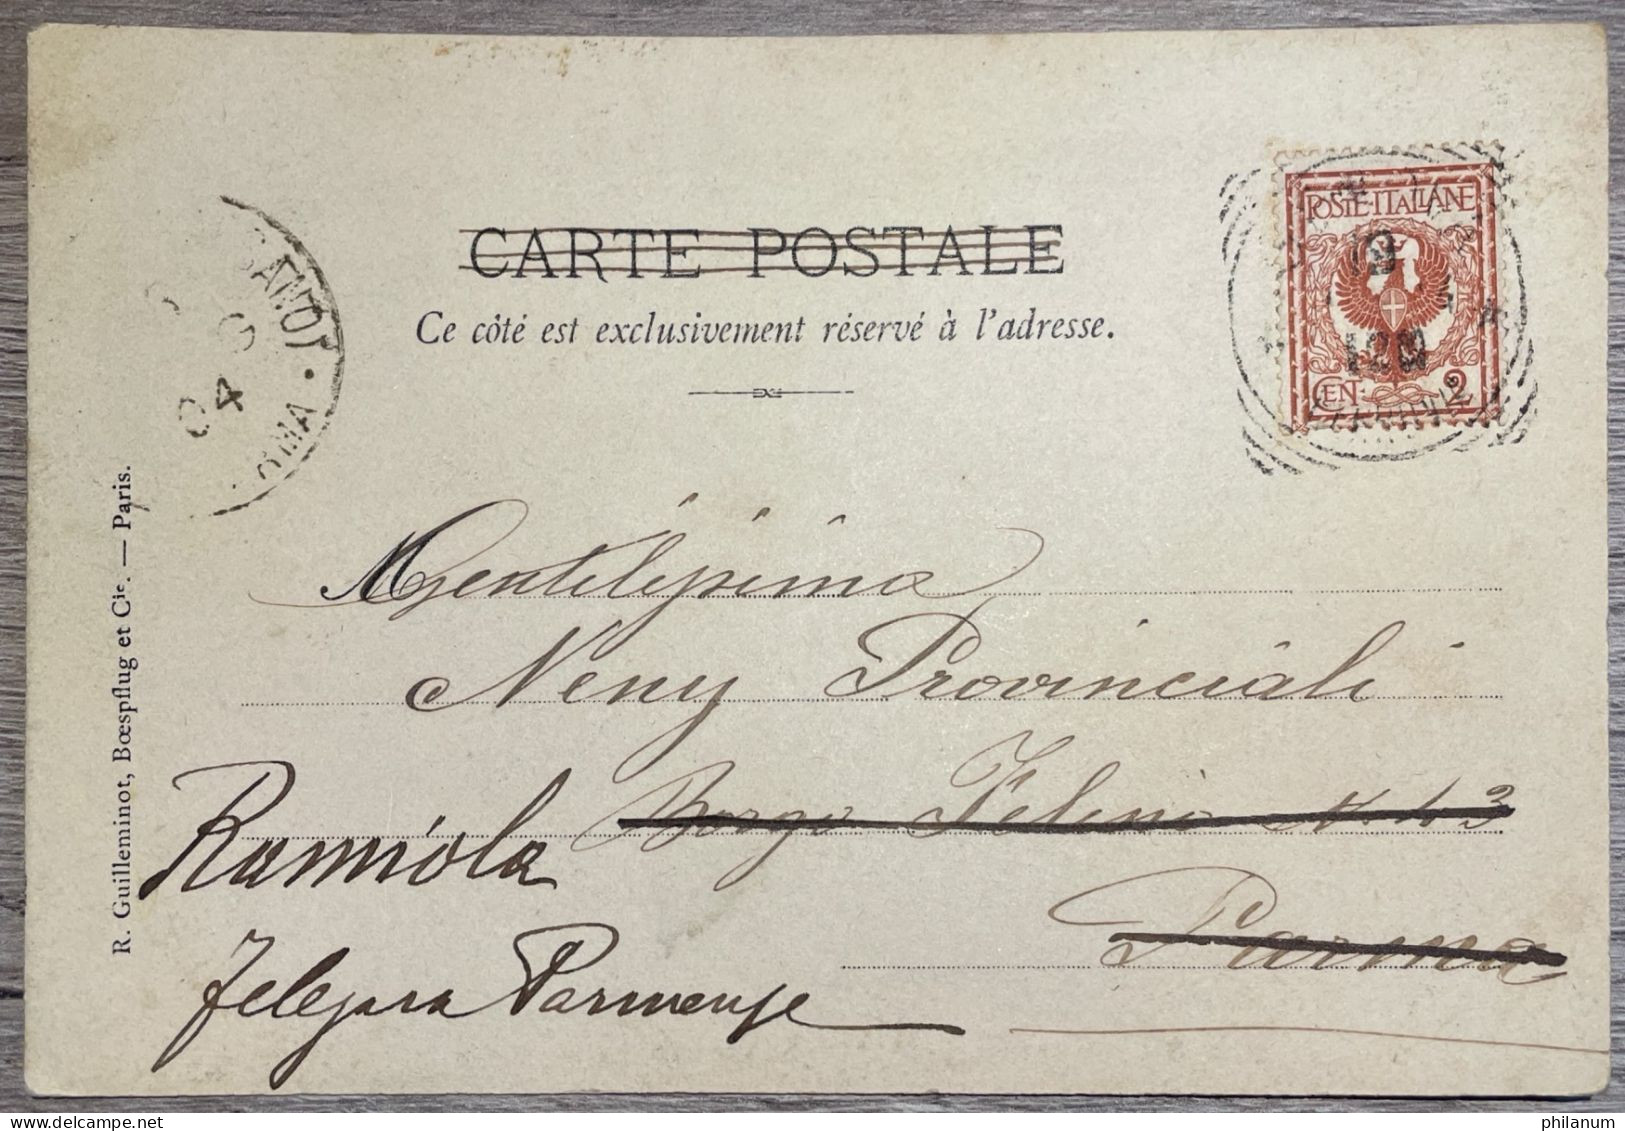 CARTE POSTALE
Ce côté est exclusivement réservé à l'adresse.
POSTE·ITALIANE
CEN 2
04
R. Guilleminot, Bœspflug et Cie. — Paris.
Gentilissima
Neny Provinciali
Borgo Felino N. 43
Parma
Ramiola
Felegara Parmense
philanum